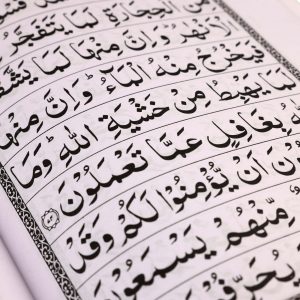 مِنَ الْحِجَارَةِ لَمَا يَتَفَجَّرُ
الْاَنْهٰرُ ؕ وَاِنَّ مِنْهَا لَمَا يَشَّقَّ
فَيَخْرُجُ مِنْهُ الْمَآءُ ؕ وَاِنَّ مِنْهَا
لَمَا يَهْبِطُ مِنْ خَشْيَةِ اللّٰهِ ؕ وَمَا
بِغَافِلٍ عَمَّا تَعْمَلُوْنَ
اَنْ يُّؤْمِنُوْا لَكُمْ وَقَدْ
مِّنْهُمْ يَسْمَعُوْنَ